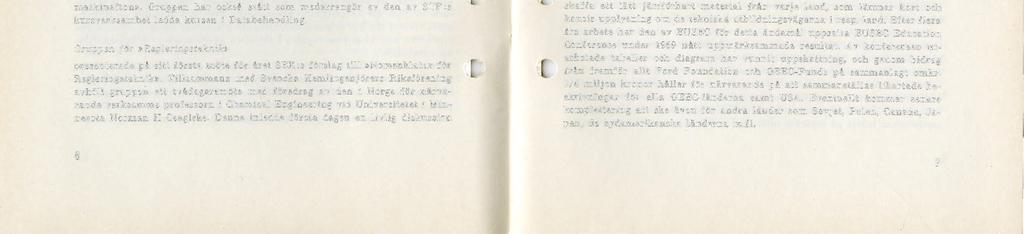 maskinaffone. Gruppen har också stått som medarrangör av den av STF:s
kursverksamhet ledda kursen i Databehandling.
Gruppen för »Regleringsteknik»
presenterade på sitt första möte för året SEK:s förslag till »Nomenklatur för
Regleringsteknik». Tillsammans med Svenska Kemiingenjörers Riksförening
avhöll gruppen ett tvådagarsmöte med föredrag av den i Norge för närva-
rande verksamme professorn i Chemical Engineering vid Universitetet i Min-
nesota Norman H Ceaglske. Denne inledde första dagen en livlig diskussion
6
skaffa ett lätt jämförbart material från varje land, som lämnar kort och
koncis upplysning om de tekniska utbildningsvägarna i resp. land. Efter flera
års arbete har den av EUSEC för detta ändamål uppsatta EUSEC Education
Conference under 1959 nått uppmärksammade resultat. Av konferensen ut-
arbetade tabeller och diagram har vunnit uppskattning, och genom bidrag
från framför allt Ford Foundation och OEEC-Funds på sammanlagt omkr.
3/4 miljon kronor håller för närvarande på att sammanställas likartade be-
skrivningar för alla OEEC-länderna samt USA. Eventuellt kommer senare
komplettering att ske även för andra länder som Sovjet, Polen, Canada, Ja-
pan, de sydamerikanska länderna m.fl.
7